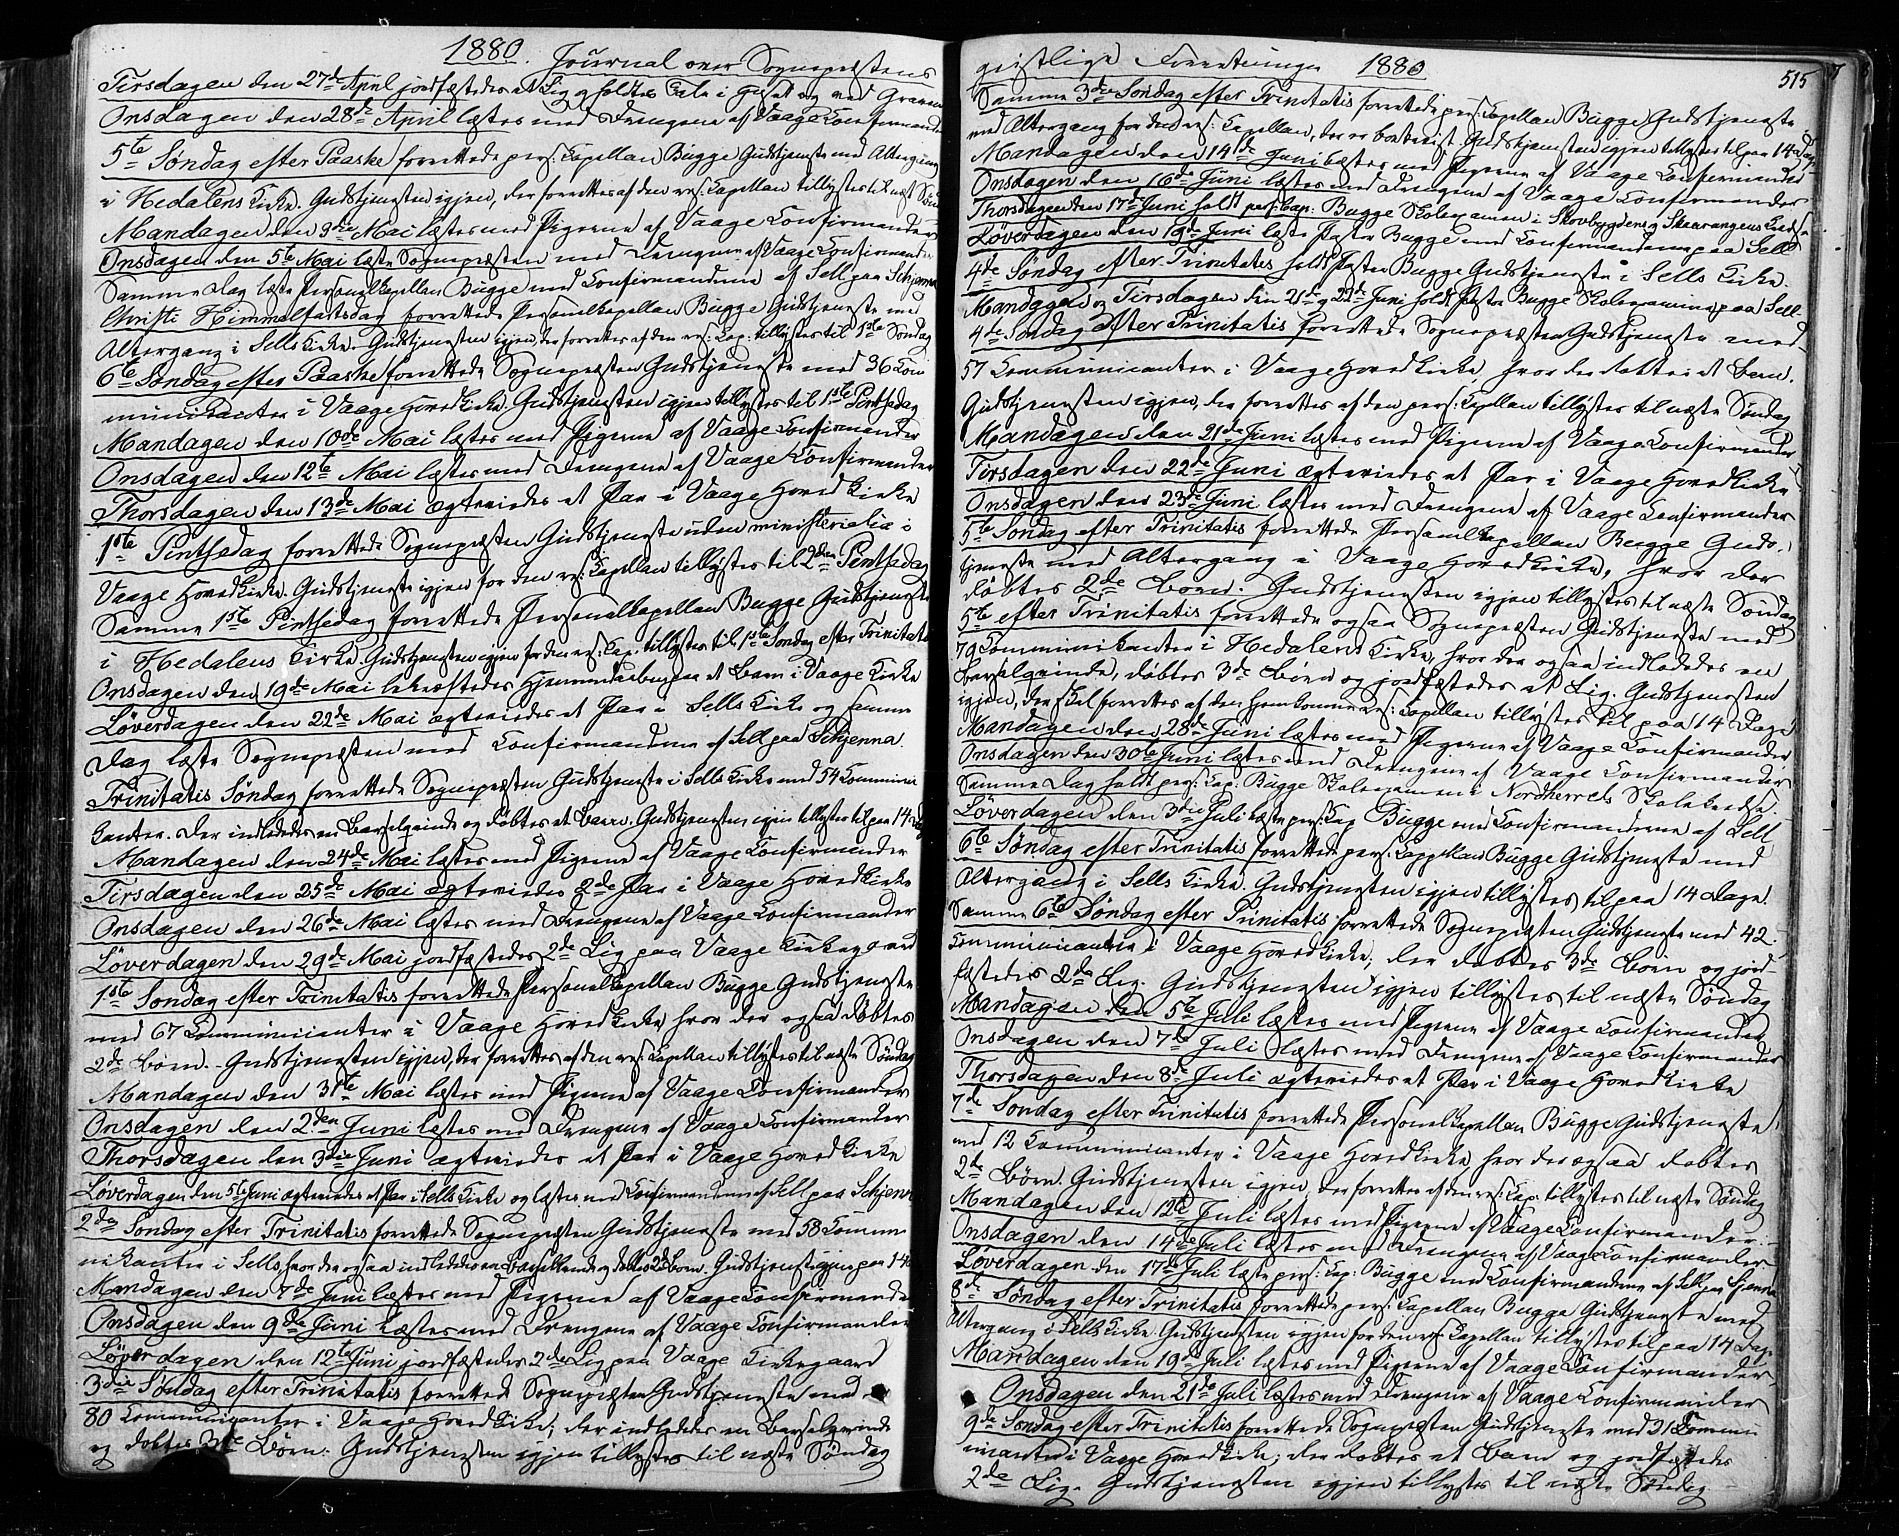 1880. Journal over Sognepræstens
Tirsdagen den 27de April jordfæstedes et Lig og holdtes Tale i Huset og ved Graven
Onsdagen den 28de April læstes med Drengene af Vaage Confirmander
5te Søndag efter Paaske forrettede pers: Capellan Bugge Gudstjeneste med Altergang
i Hedalens Kirke. Gudstjenesten igjen, der forrettes af den res: Capellan tillystes til næst Sønd
Mandagen den 3die Mai læstes med Pigerne af Vaage Confirmander
Onsdagen den 5te Mai læste Sognepræsten med Drengene af Vaage Confirmander
Samme Dag læste Personelkapellan Bugge med Confirmanderne af Sell paa Schjenna
Christi Himmelfartsdag forrettede Personelkapellan Bugge Gudstjeneste med
Altergang i Sells Kirke. Gudstjenesten igjen, der forrettes af den res: Cap: tillystes til 1ste Søndag
6te Søndag efter Paaske forrettede Sognepræsten Gudstjeneste med 36 Com
munikanter i Vaage Hovedkirke. Gudstjenesten igjen tillystes til 1ste Pintsedag
Mandagen den 10de Mai læstes med Pigerne af Vaage Confirmander
Onsdagen den 12te Mai læstes med Drengene af Vaage Confirmander
Thorsdagen den 13de Mai ægteviedes et Par i Vaage Hovedkirke
1ste Pintsedag forrettede Sognepræsten Gudstjeneste uden ministerialia i
Vaage Hovedkirke. Gudstjeneste igjen for den res: Capellan tillystes til 2den Pintsedag
Samme 1ste Pintsedag forrettede Personalkapellan Bugge Gudstjeneste
i Hedalens Kirke. Gudstjenesten igjen for den res: Cap: tillystes til 1ste Søndag efter Trinitatis
Onsdagen den 19de Mai bekræftedes Hjemmedaaben paa et Barn i Vaage Kirke
Løverdagen den 22de Mai ægteviedes et Par i Sells Kirke og samme
Dag læste Sognepræsten med Confirmanderne af Sell paa Schjenna.
Trinitatis Søndag forrettede Sognepræsten Gudstjeneste i Sells Kirke med 54 Communi
kanter. Der indlededes en Barselqvinde og døbtes et Barn. Gudstjenesten igjen tillystes til paa 14 Dag
Mandagen den 24de Mai læstes med Pigerne af Vaage Confirmander
Tirsdagen den 25de Mai ægteviedes 2de Par i Vaage Hovedkirke
Onsdagen den 26de Mai læstes med Drengene af Vaage Confirmander
Løverdagen den 29de Mai jordfæstedes 2de Lig paa Vaage Kirkegaard
1ste Søndag efter Trinitatis forrettede Personelkapellan Bugge Gudstjeneste
med 67 Communicanter i Vaage Hovedkirke hvor der ogsaa døbtes
2de Børn. Gudstjenesten igjen, der forrettes af den res: Capellan tillystes til næste Søndag
Mandagen den 31te Mai læstes med Pigerne af Vaage Confirmander
Onsdagen den 2den Juni læstes med Drengene af Vaage Confirmander
Thorsdagen den 3die Juni ægteviedes et Par i Vaage Hovedkirke
Løverdagen den 5te Juni ægteviedes et Par i Sells Kirke og læstes med Confirmanderne af Sell paa Schjenna
2den Søndag efter Trinitatis forrettede Sognepræsten Gudstjeneste med 58 Commu
nikanter i Sell, hvor der ogsaa indlededes en Barselkvinde og døbtes 2de Børn. Gudstjeneste igjen paa 14
Mandagen den 7de Juni læstes med Pigerne af Vaage Confirmander
Onsdagen den 9de Juni læstes med Drengene af Vaage Confirmander
Løverdagen den 12te Juni jordfæstedes 2de Lig paa Vaage Kirkegaard
3die Søndag efter Trinitatis forrettede Sognepræsten Gudstjeneste med
80 Communicanter i Vaage Hovedkirke; der indlededes en Barselqvinde
og døbtes 3de Børn. Gudstjenesten igjen tillystes til næste Søndag
geistlige Forretninger 1880
515
Samme 3die Søndag efter Trinitatis forrettede pers: Capellan Bugge Gudstjeneste
med Altergang for den res: Capellan, der er bortreist. Gudstjenesten igjen tillystes til paa 14 Dage
Mandagen den 14de Juni læstes med Pigerne af Vaage Confirmander
Onsdagen den 16de Juni læstes med Drengene af Vaage Confirmander
Thorsdagen den 17de Juni holdt pers: Cap: Bugge Skoleexamen i Skovbygdens og Skaarvangens Kredse
Løverdagen den 19de Juni læste Pastor Bugge med Confirmanderne paa Sell
4de Søndag efter Trinitatis holdt Pastor Bugge Gudstjeneste i Sells Kirke.
Mandagen og Tirsdagen den 21de og 22de Juni holdt Pastor Bugge Skoleexamina paa Sell.
4de Søndag efter Trinitatis forrettede Sognepræsten Gudstjeneste med
57 Communicanter i Vaage Hovedkirke, hvor der døbtes et Barn.
Gudstjenesten igjen, der forrettes af den pers: Capellan tillystes til næste Søndag
Mandagen den 21de Juni læstes med Pigerne af Vaage Confirmander
Tirsdagen den 22de Juni ægteviedes et Par i Vaage Hovedkirke
Onsdagen den 23de Juni læstes med Drengene af Vaage Confirmander
5te Søndag efter Trinitatis forrettede Personelkapellan Bugge Guds-
tjeneste med Altergang i Vaage Hovedkirke, hvor der
døbtes 2de Børn. Gudstjenesten igjen tillystes til næste Søndag
5te efter Trinitatis forrettede ogsaa Sognepræsten Gudstjeneste med
79 Communikanter i Hedalens Kirke, hvor der ogsaa indlededes en
Barselqvinde, døbtes 3de Børn og jordfæstedes et Lig. Gudstjenesten
igjen, der skal forrettes af den hjemkomne res: Capellan tillystes til paa 14 Dage
Mandagen den 28de Juni læstes med Pigerne af Vaage Confirmander
Onsdagen den 30te Juni læstes med Drengene af Vaage Confirmander
Samme Dag holdt pers: Cap: Bugge Skoleexamen i Nordherreds Skolekreds.
Løverdagen den 3die Juli læste pers: Cap Bugge med Confirmanderne af Sell
6te Søndag efter Trinitatis forrettede pers: Cappellan Bugge Gudstjeneste med
Altergang i Sells Kirke. Gudstjenesten igjen tillystes til paa 14 Dage.
Samme 6te Søndag efter Trinitatis forrettede Sognepræsten Gudstjeneste med 42
Communicanter i Vaage Hovedkirke; der døbtes 3de Børn og jord-
fæstedes 2de Lig. Gudstjenesten igjen tillystes til næste Søndag
Mandagen den 5te Juli læstes med Pigerne af Vaage Confirmander
Onsdagen den 7de Juli læstes med Drengene af Vaage Confirmander
Thorsdagen den 8de Juli ægteviedes et Par i Vaage Hovedkirke
7de Søndag efter Trinitatis forrettede Personelkapellan Bugge Gudstjeneste
med 12 Communicanter i Vaage Hovedkirke, hvor der ogsaa døbtes
2de Børn. Gudstjenesten igjen, der forrettes af den res: Cap: tillystes til næste Søndag
Mandagen den 12te Juli læstes med Pigerne af Vaage Confirmander.
Onsdagen den 14de Juli læstes med Drengene af Vaage Confirmander
Løverdagen den 17de Juli læste pers: Cap: Bugge med Confirmanderne af Sell paa Sjenna
8de Søndag efter Trinitatis forrettede pers: Capellan Bugge Gudstjeneste med
Altergang i Sells Kirke. Gudstjenesten igjen for den res: Capellan tillystes til paa 14 Dage
Mandagen den 19de Juli læstes med Pigerne af Vaage Confirmander,
Onsdagen den 21de Juli læstes med Drengene af Vaage Confirmander
9de Søndag efter Trinitatis forrettede Sognepræsten Gudstjeneste med 31 Commu
nicanter i Vaage Hovedkirke; der døbtes et Barn og jordfæstedes
2de Lig. Gudstjenesten igjen tillystes til næste Søndag